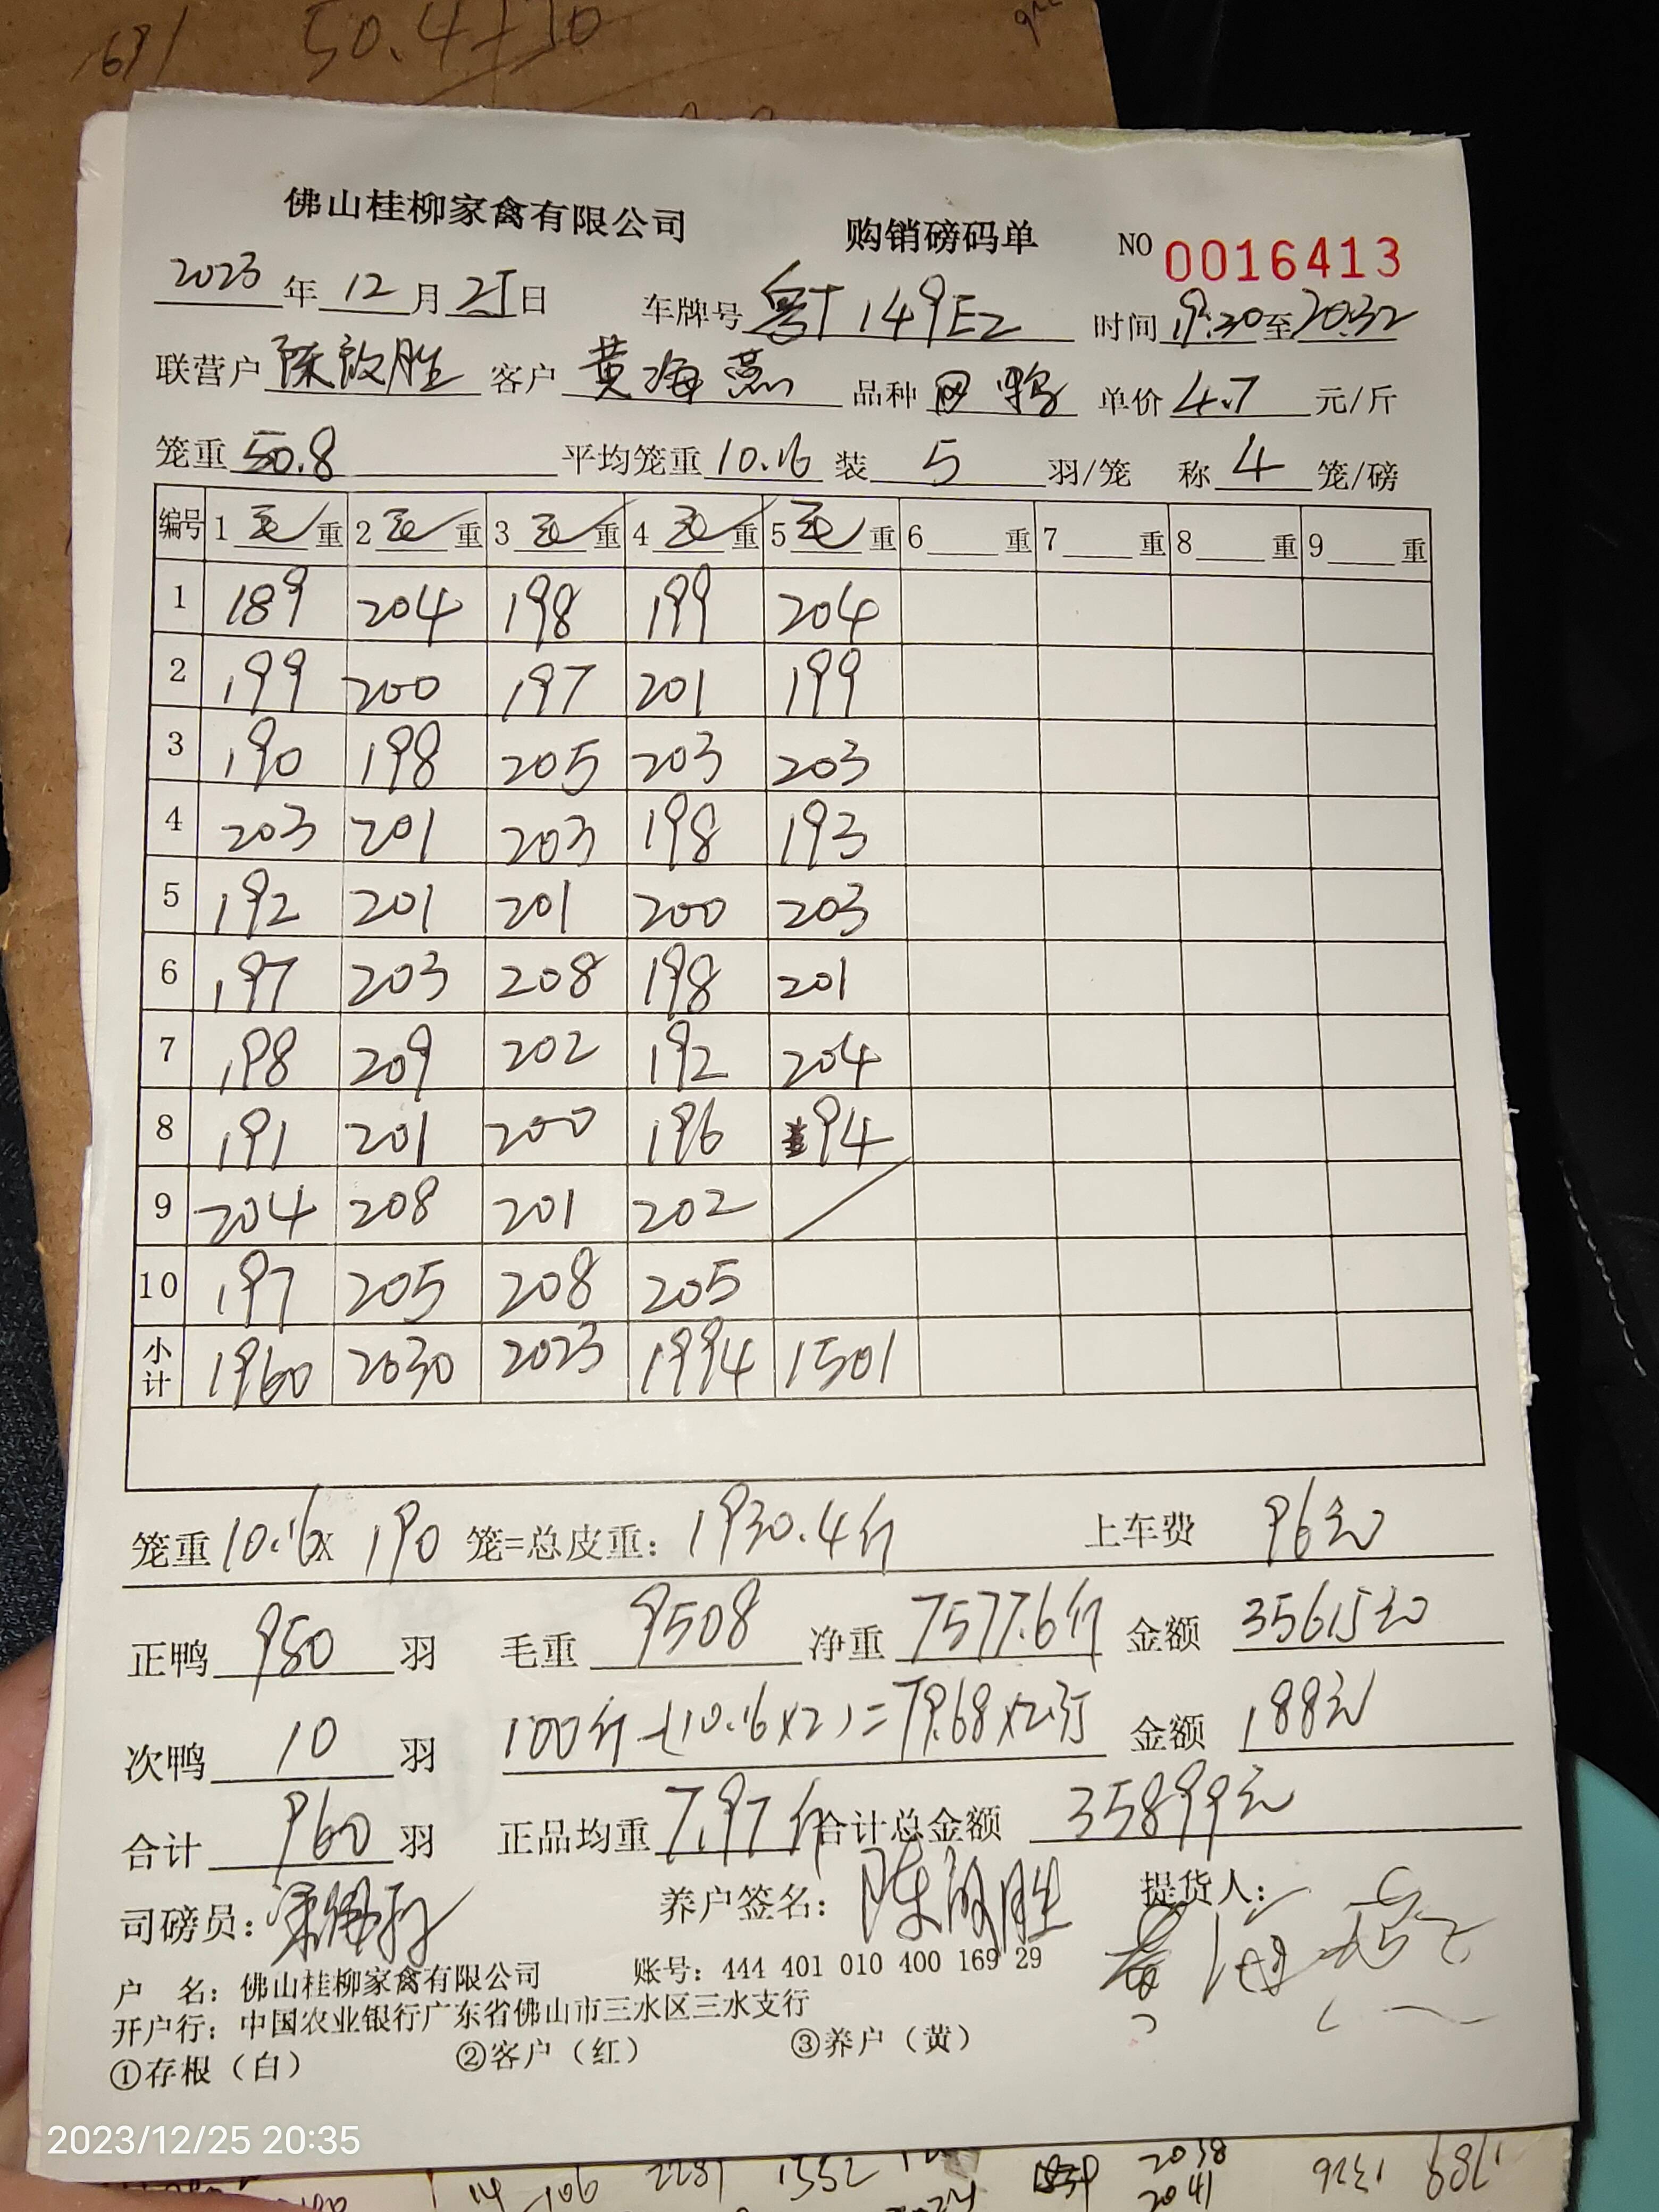 1691 50.4+50
佛山桂柳家禽有限公司 购销磅码单 NO 0016413
2023年12月25日 车牌号 粤T149EZ 时间19:30至20:32
联营户 陈啟胜 客户 黄海燕 品种 鸭 单价4.7元/斤
笼重50.8 平均笼重10.16 装5羽/笼 称4笼/磅
编号 1毛重 2毛重 3毛重 4毛重 5毛重 6重 7重 8重 9重
1 189 204 198 199 204
2 199 200 197 201 199
3 190 198 205 203 203
4 203 201 203 198 193
5 192 201 201 200 203
6 197 203 208 198 201
7 198 209 202 192 204
8 191 201 200 196 94
9 204 208 201 202
10 197 205 208 205
小计 1960 2030 2023 1994 1501
笼重10.16x190笼=总皮重：1930.4斤 上车费 96元
正鸭950羽 毛重9508 净重7577.6斤 金额35615元
次鸭10羽 100斤-(10.16x2)=79.68x2.35 金额188元
合计960羽 正品均重7.97斤 合计总金额35899元
司磅员： 养户签名：陈啟胜 提货人：黄海燕
户 名：佛山桂柳家禽有限公司 账号：444 401 010 400 169 29
开户行：中国农业银行广东省佛山市三水区三水支行
①存根（白） ②客户（红） ③养户（黄）
2023/12/25 20:35
14 106 2281 1552 2038
2041 1326 1789